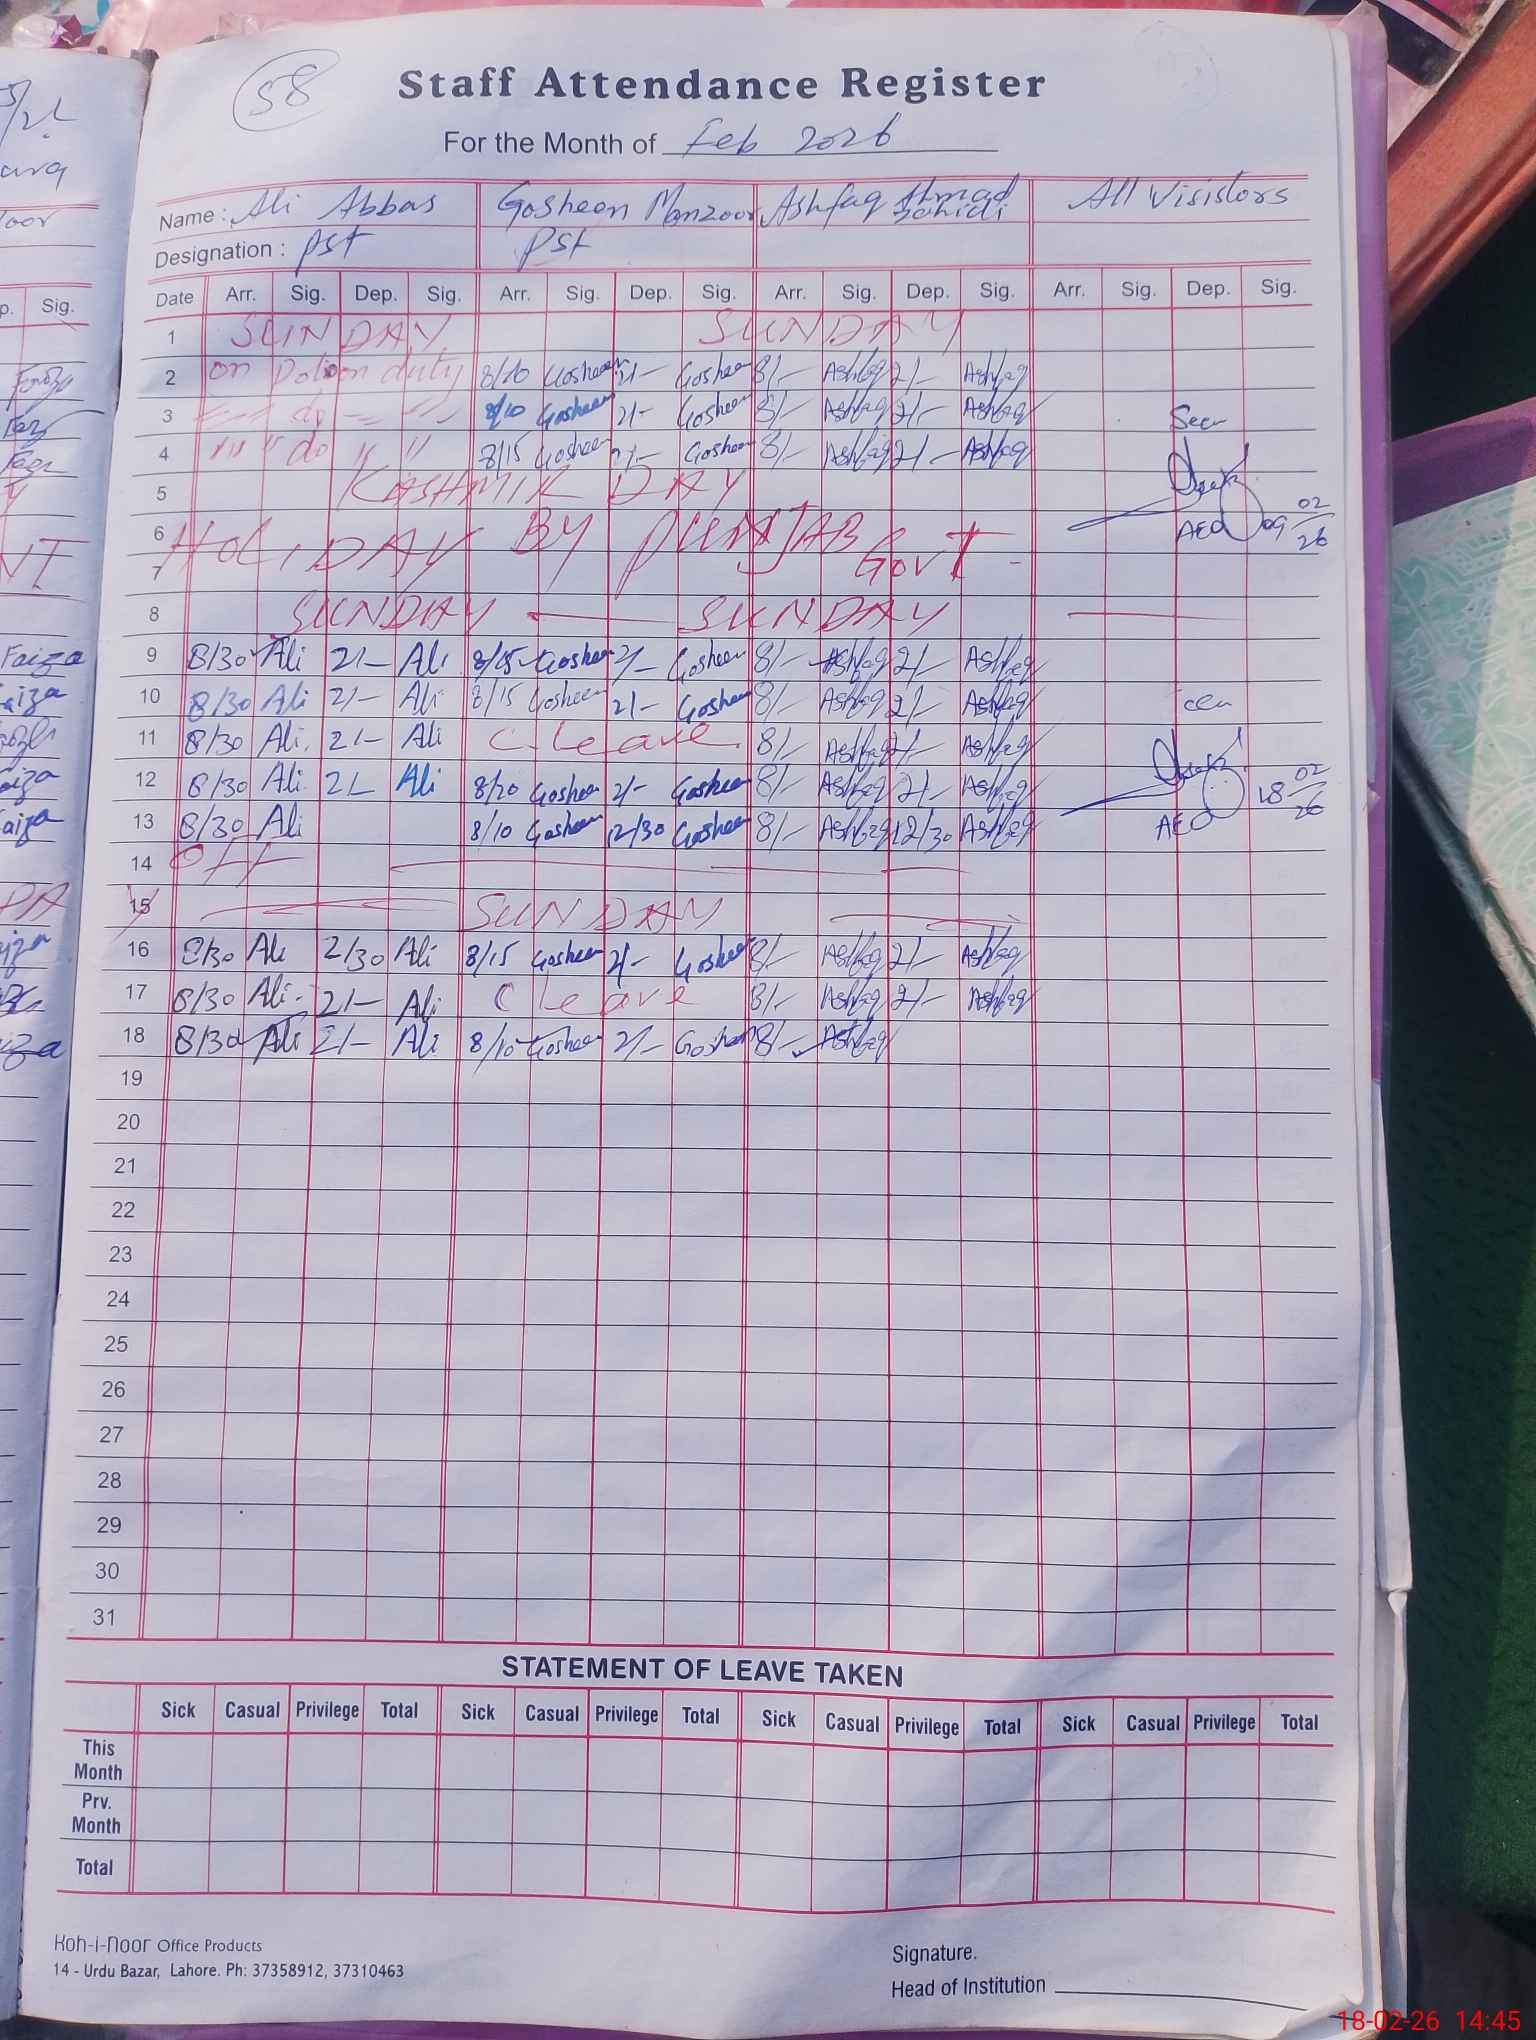 58
Staff Attendance Register
For the Month of Feb 2026
Name : Ali Abbas Gosheen Manzoor Ashfaq Ahmad All Visistors
Designation : PST PST
Date Arr. Sig. Dep. Sig. Arr. Sig. Dep. Sig. Arr. Sig. Dep. Sig. Arr. Sig. Dep. Sig.
1 SUNDAY SUNDAY
2 on duty 8/10 Gosheen 2/- Gosheen 8/- Ashfaq 2/- Ashfaq
3 do 8/10 Gosheen 2/- Gosheen 8/- Ashfaq 2/- Ashfaq Seen
4 " " do " " 8/15 Gosheen 2/- Gosheen 8/- Ashfaq 2/- Ashfaq
5 KASHMIR DAY
6 HOLIDAY BY PUNJAB AEO 09 02/26
7 GOVT
8 SUNDAY SUNDAY
9 8/30 Ali 2/- Ali 8/15 Gosheen 2/- Gosheen 8/- Ashfaq 2/- Ashfaq
10 8/30 Ali 2/- Ali 8/15 Gosheen 2/- Gosheen 8/- Ashfaq 2/- Ashfaq
11 8/30 Ali 2/- Ali C. Leave 8/- Ashfaq 2/- Ashfaq
12 8/30 Ali 2/- Ali 8/20 Gosheen 2/- Gosheen 8/- Ashfaq 2/- Ashfaq 18 02/26
13 8/30 Ali 8/10 Gosheen 12/30 Gosheen 8/- Ashfaq 12/30 Ashfaq AEO
14 Off
15 SUNDAY
16 8/30 Ali 2/30 Ali 8/15 Gosheen 2/- Gosheen 8/- Ashfaq 2/- Ashfaq
17 8/30 Ali 2/- Ali C Leave 8/- Ashfaq 2/- Ashfaq
18 8/30 Ali 2/- Ali 8/10 Gosheen 2/- Gosheen 8/- Ashfaq
19
20
21
22
23
24
25
26
27
28
29
30
31
STATEMENT OF LEAVE TAKEN
Sick Casual Privilege Total Sick Casual Privilege Total Sick Casual Privilege Total Sick Casual Privilege Total
This Month
Prv. Month
Total
Koh-i-noor Office Products
14 - Urdu Bazar, Lahore. Ph: 37358912, 37310463
Signature.
Head of Institution
Sig.
Faiza
18-02-26 14:45